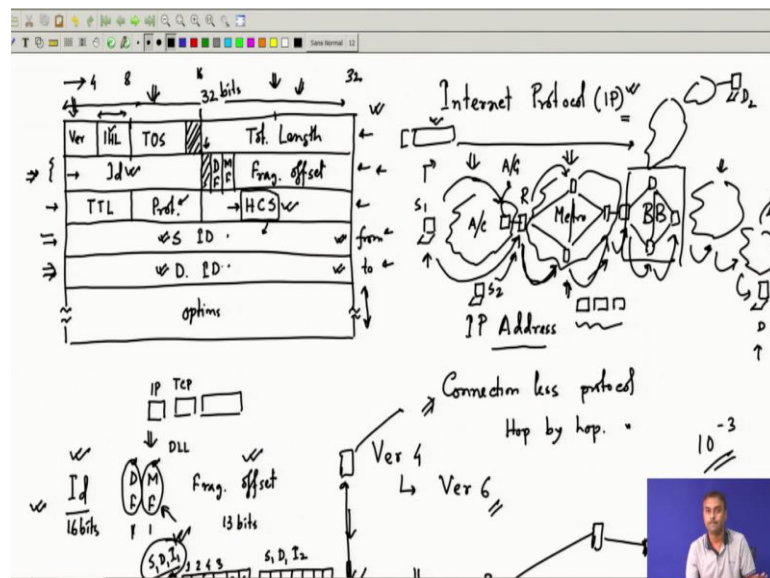 Sans Normal 12
4 8 16 32
32 bits
Ver IHL TOS Tot. Length
Id DF MF Frag. offset
TTL Prot. HCS
S ID from
D. ID to
options
Internet Protocol (IP)
D2
A/G
S1 A/C R Metro BB
S2 D
IP Address
IP TCP
DLL
Id DF MF Frag. offset
16 bits 1 1 13 bits
S, D, I1 1 2 3 4 S, D, I2
Connection less protocol
Hop by hop.
Ver 4
Ver 6
10-3